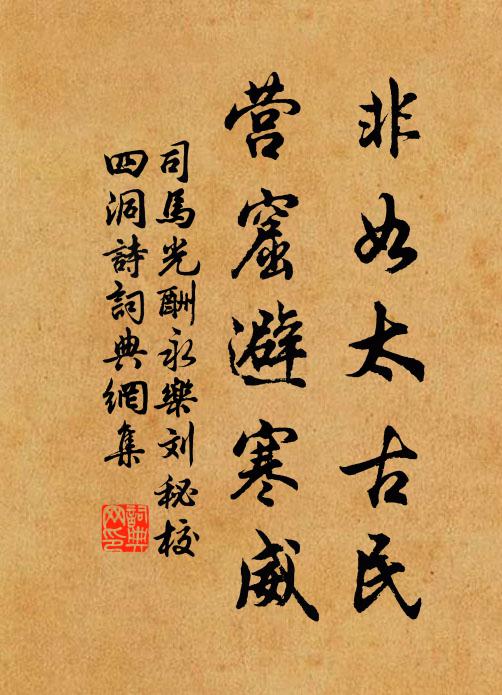 非如太古民
营窟避寒威
司馬光酬永樂刘秘校
四洞詩詞典網集
詞典网印